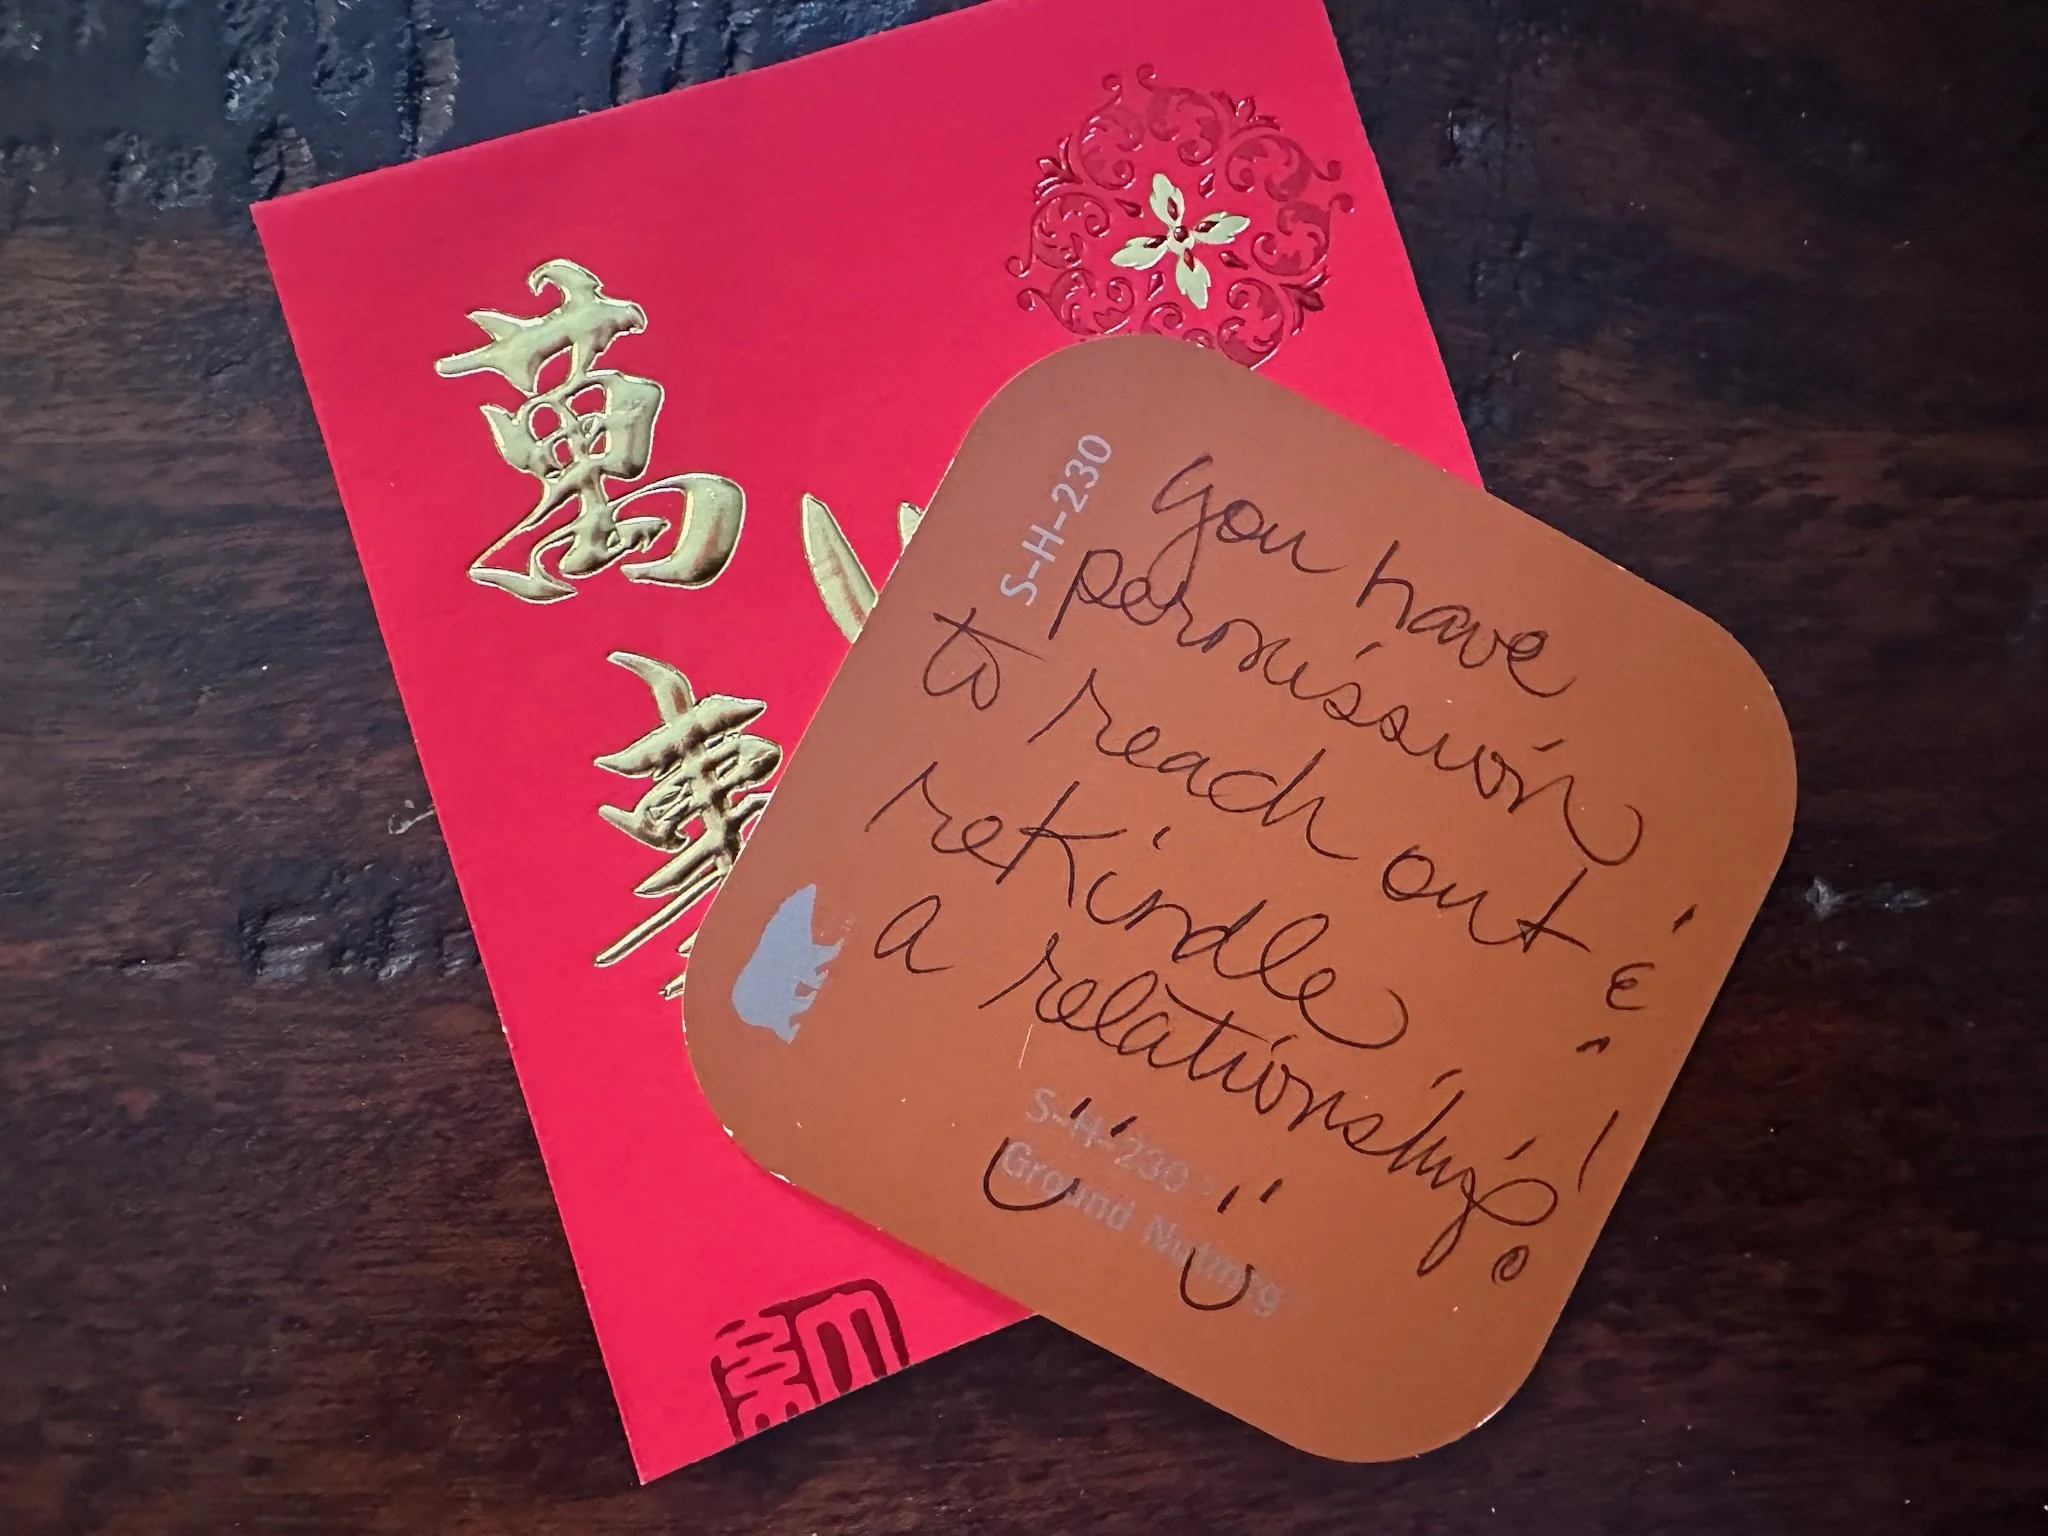 萬
事
S-H-230
you have
permission
to reach out &
rekindle
a relationship!
S-H-230
Ground Nutmeg